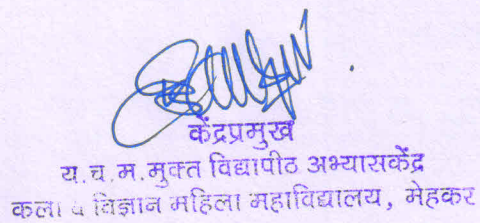 केंद्रप्रमुख
य.च.म.मुक्त विद्यापीठ अभ्यासकेंद्र
कला व विज्ञान महिला महाविद्यालय, मेहकर